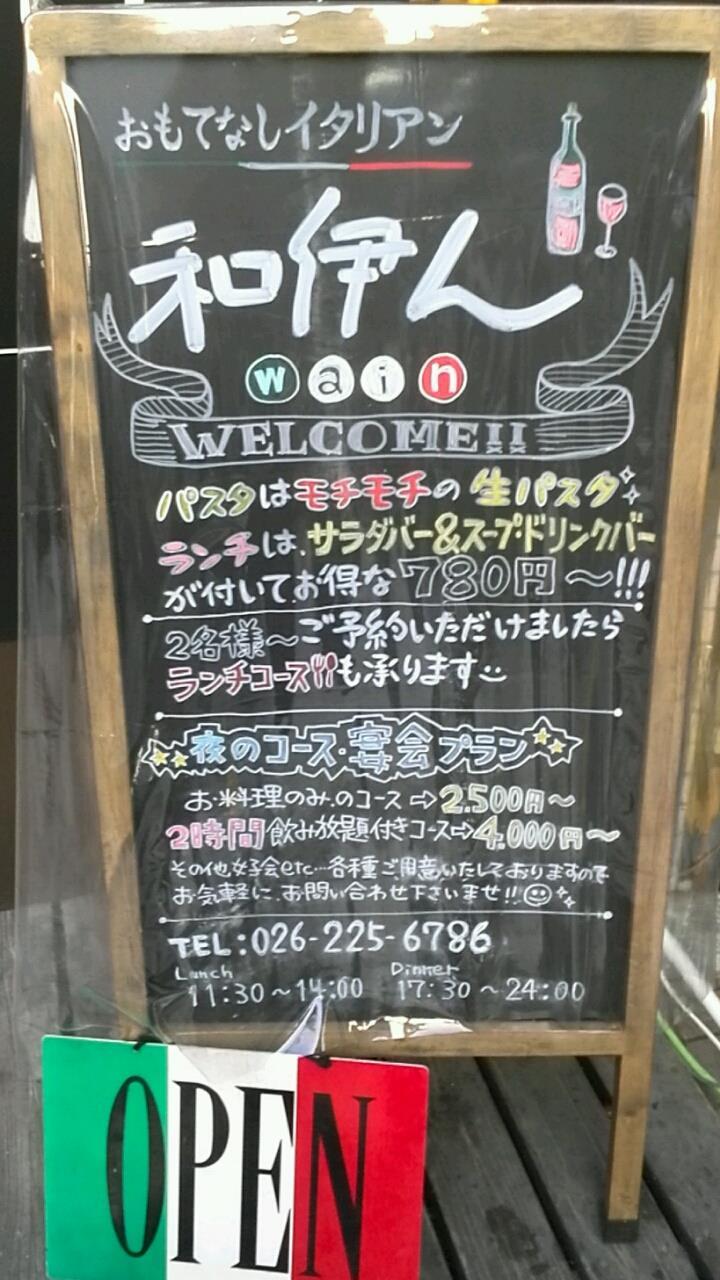 おもてなしイタリアン
和伊ん
wain
WELCOME!!
パスタはモチモチの生パスタ
ランチは、サラダバー&スープ・ドリンクバー
が付いてお得な780円〜!!!
2名様〜ご予約いただけましたら
ランチコースも承ります
夜のコース・宴会プラン
お料理のみのコース⇨2.500円〜
2時間飲み放題付きコース⇨4.000円〜
その他女子会etc…各種ご用意いたしておりますので
お気軽に、お問い合わせ下さいませ!!
TEL:026-225-6786
Lunch Dinner
11:30〜14:00 17:30〜24:00
OPEN